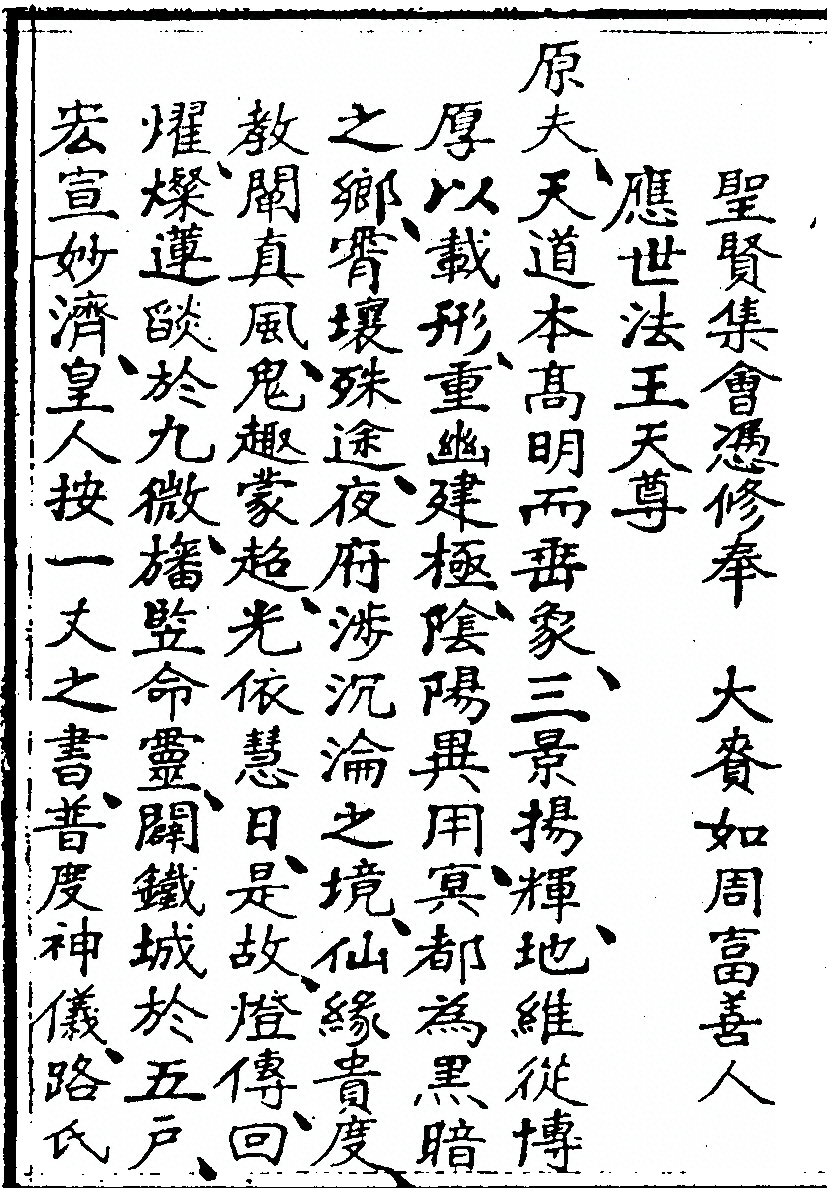 聖賢集會憑修奉　大賚如周富善人
應世法王天尊
原夫天道本髙明而垂象三景揚輝地維從博
厚以載形重幽建極陰陽異用冥都為黑暗
之鄉霄壤殊途夜府涉沉淪之境仙緣貴度
教闡真風鬼趣蒙超光依慧日是故燈傳回
燿燦蓮燄於九微旛竪命靈闢鐵城於五戸
宏宣妙濟皇人按一丈之書普度神儀路氏